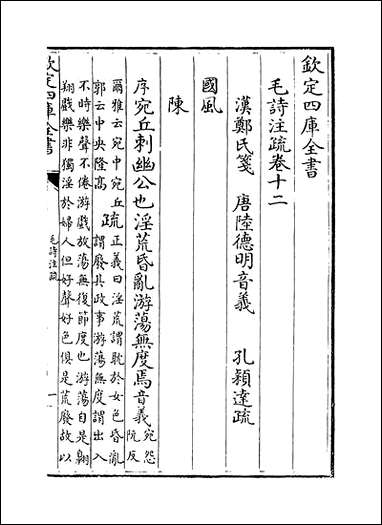 欽定四庫全書
毛詩注疏卷十二
漢鄭氏箋　唐陸德明音義　孔穎達疏
國風
陳
序宛丘刺幽公也淫荒昏亂游蕩無度焉音義宛怨
阮反
爾雅云宛中宛丘疏正義曰淫荒謂耽於女色昏亂
郭云中央隆高　謂廢其政事游蕩無度謂出入
不時樂聲不倦游戲放蕩無復節度也游蕩自是翱
翔戲樂非獨淫於婦人但好聲好色俱是荒廢故以
欽定四庫全書
毛詩注疏
一